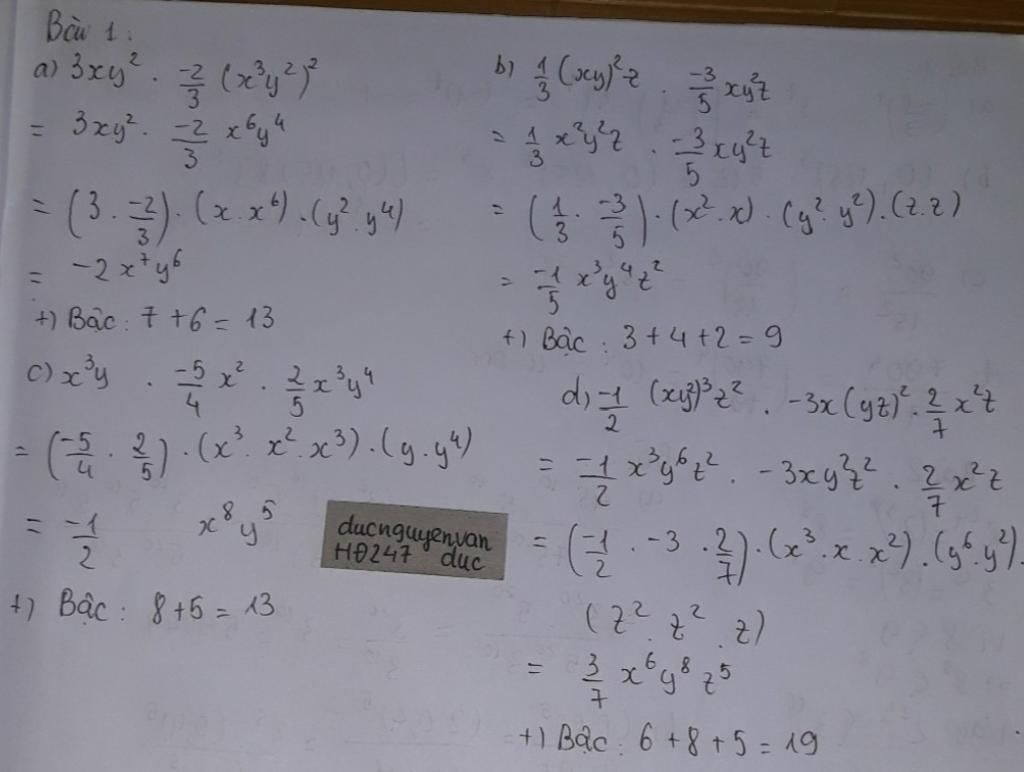 Bài 1:
a) 3xy² . -2/3 (x³y²)²
= 3xy² . -2/3 x⁶y⁴
= (3 . -2/3) . (x . x⁶) . (y² . y⁴)
= -2x⁷y⁶
+) Bậc : 7 + 6 = 13
b) 1/3 (xy)²z . -3/5 xy²z
= 1/3 x²y²z . -3/5 xy²z
= (1/3 . -3/5) . (x² . x) . (y² . y²) . (z . z)
= -1/5 x³y⁴z²
+) Bậc : 3 + 4 + 2 = 9
c) x³y . -5/4 x² . 2/5 x³y⁴
= (-5/4 . 2/5) . (x³ . x² . x³) . (y . y⁴)
= -1/2 x⁸y⁵
+) Bậc : 8 + 5 = 13
d) -1/2 (xy²)³z² . -3x(yz)² . 2/7 x²z
= -1/2 x³y⁶z² . -3xy²z² . 2/7 x²z
= (-1/2 . -3 . 2/7) . (x³ . x . x²) . (y⁶ . y²) .
(z² . z² . z)
= 3/7 x⁶y⁸z⁵
+) Bậc : 6 + 8 + 5 = 19
ducnguyenvan
HĐ247 duc